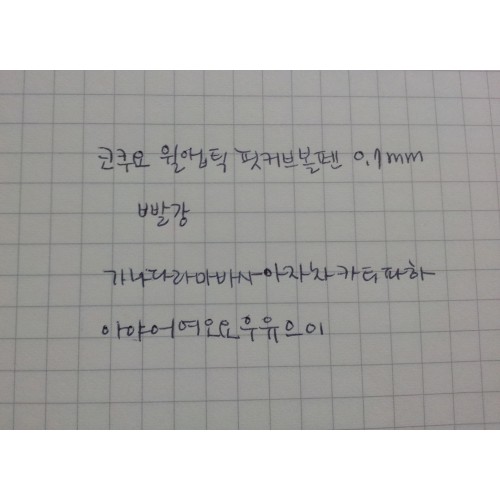 코쿠요 윌앱틱 핏커브볼펜 0.1mm
빨강
가나다라마바사아자차카타파하
아야어여오요후유으이